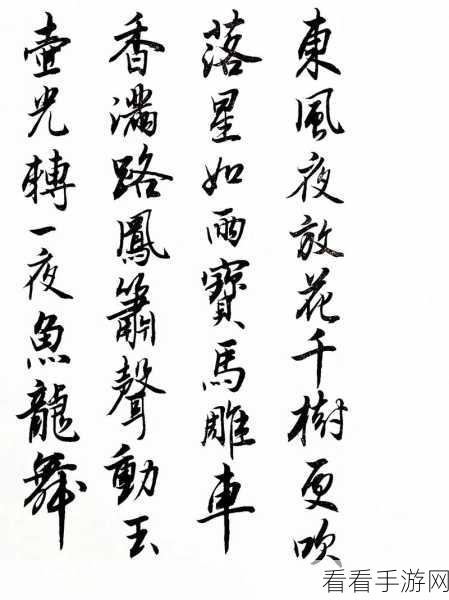 東風夜放花千樹更吹
落星如雨寶馬雕車
香滿路鳳簫聲動玉
壺光轉一夜魚龍舞
看看手游网